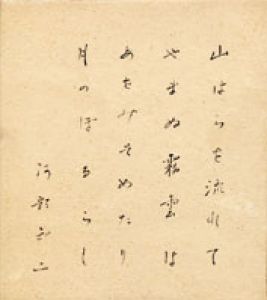 山はらを流れて
やまぬ霧雲は
あをみそめたり
月のぼるらし
阿部知二